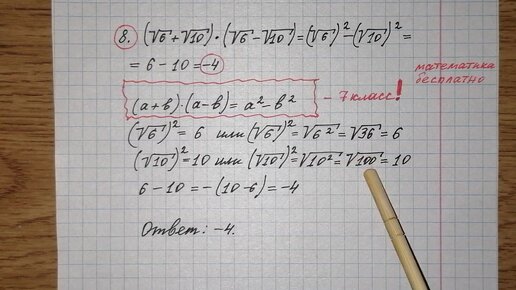 8. (√6 + √10) · (√6 - √10) = (√6)² - (√10)² =
= 6 - 10 = -4
математика
бесплатно
(a+b)·(a-b) = a² - b² - 7 класс!
(√6)² = 6 или (√6)² = √6² = √36 = 6
(√10)² = 10 или (√10)² = √10² = √100 = 10
6 - 10 = -(10-6) = -4
Ответ: -4.